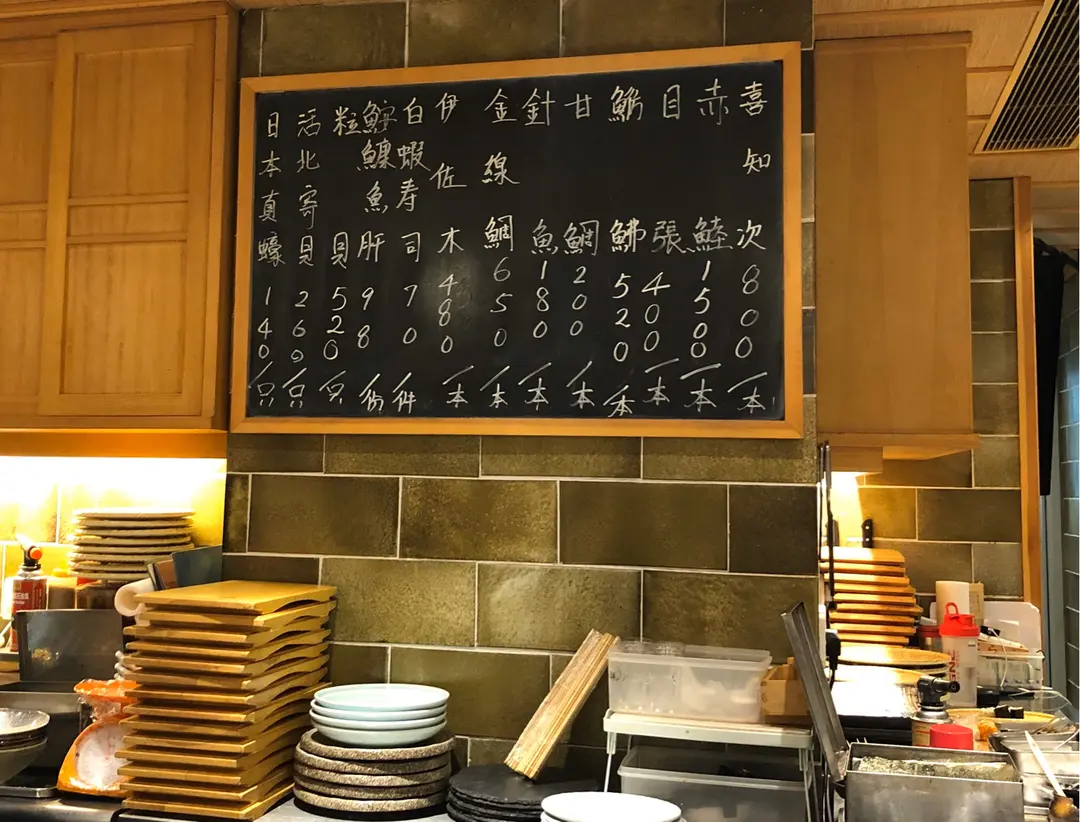 喜知次800/本
赤鯥1500/本
目張400/本
魴鮄520/本
甘鯛200/本
針魚180/本
金線鯛650/本
伊佐木480/本
白蝦寿司70/件
鮟鱇魚肝98/份
粒貝520/只
活北寄貝260/只
日本真蠔140/只